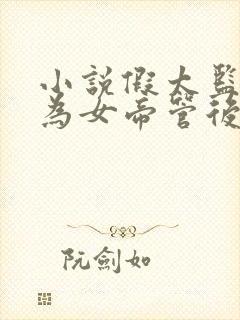 小說假太監
為女帝管後
阮劍如